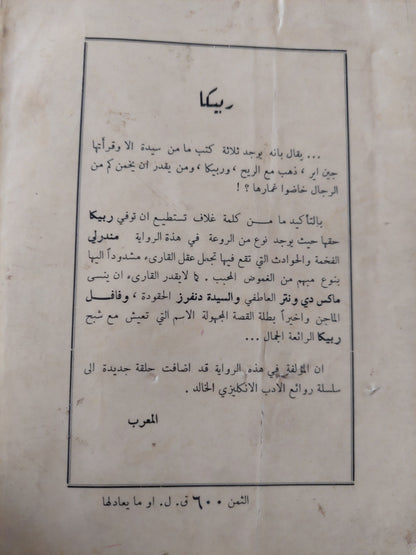 ربيكا
... يقال بانه يوجد ثلاثة كتب ما من سيدة الا وقرأتها
جين اير ، ذهب مع الريح ، وربيكا ، ومن يقدر ان يخمن كم من
الرجال خاضوا غمارها ؟ !
بالتأكيد ما مــن كلمة غلاف تستطيع ان توفي ربيكا
حقها حيث يوجد نوع من الروعة في هذة الرواية مندرلي
الفخمة والحوادث التي تقع فيها تجعل عقل القارىء مشدوداً اليها
بنوع مبهم من الغموض المحبب . فلا يقدر القارىء ان ينسى
ماكس دي ونتر العاطفي والسيدة دنفرز الحقودة ، وفافل
الماجن واخيراً بطلة القصة المجهولة الاسم التي تعيش مع شبح
ربيكا الرائعة الجمال ...
ان المؤلفة في هذه الرواية قد اضافت حلقة جديدة الى
سلسلة روائع الادب الانكليزي الخالد .
المعرب
الثمن ٦٠٠ ق . ل . او ما يعادلها